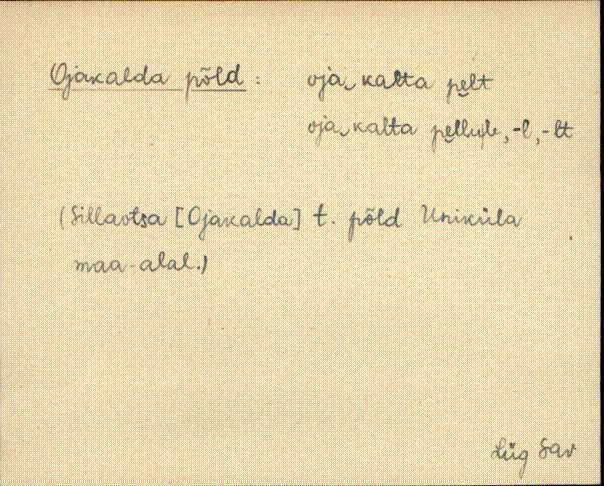 Ojakalda põld: oja‿kalta pe̮lt
oja‿kalta pe̮llule, -l, -lt
(Sillaotsa [Ojakalda] t. põld Uniküla
maa-alal.)
Lüg Sav